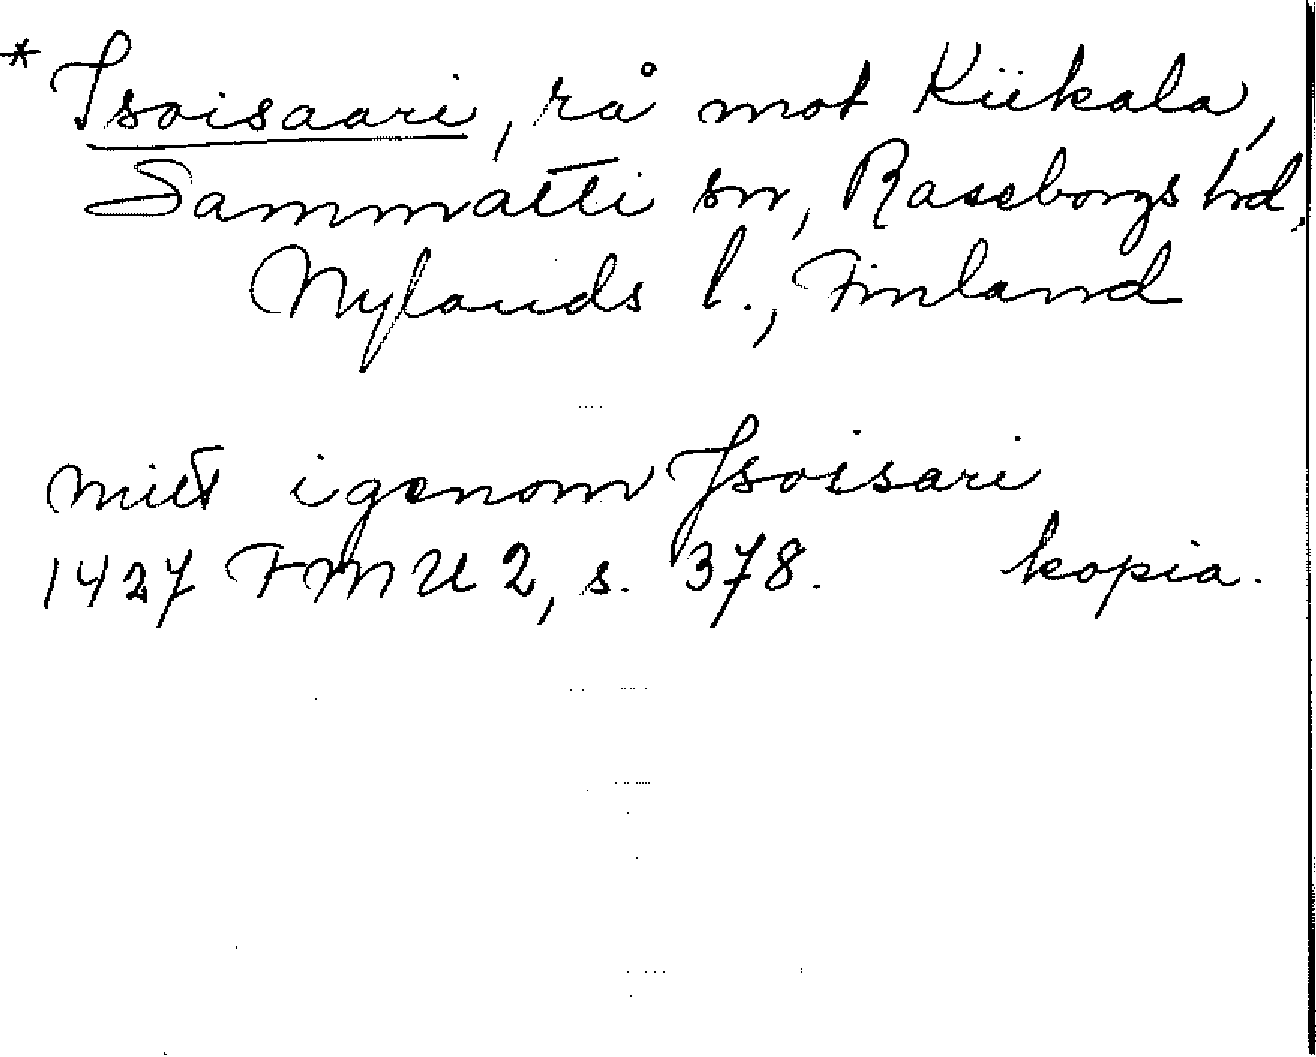 * Isoisaari, rå mot Kiikala,
Sammatti sn, Raseborgs hd,
Nylands l., Finland
mit igenom Jsoissari
1427 FMU 2, s. 378. kopia.